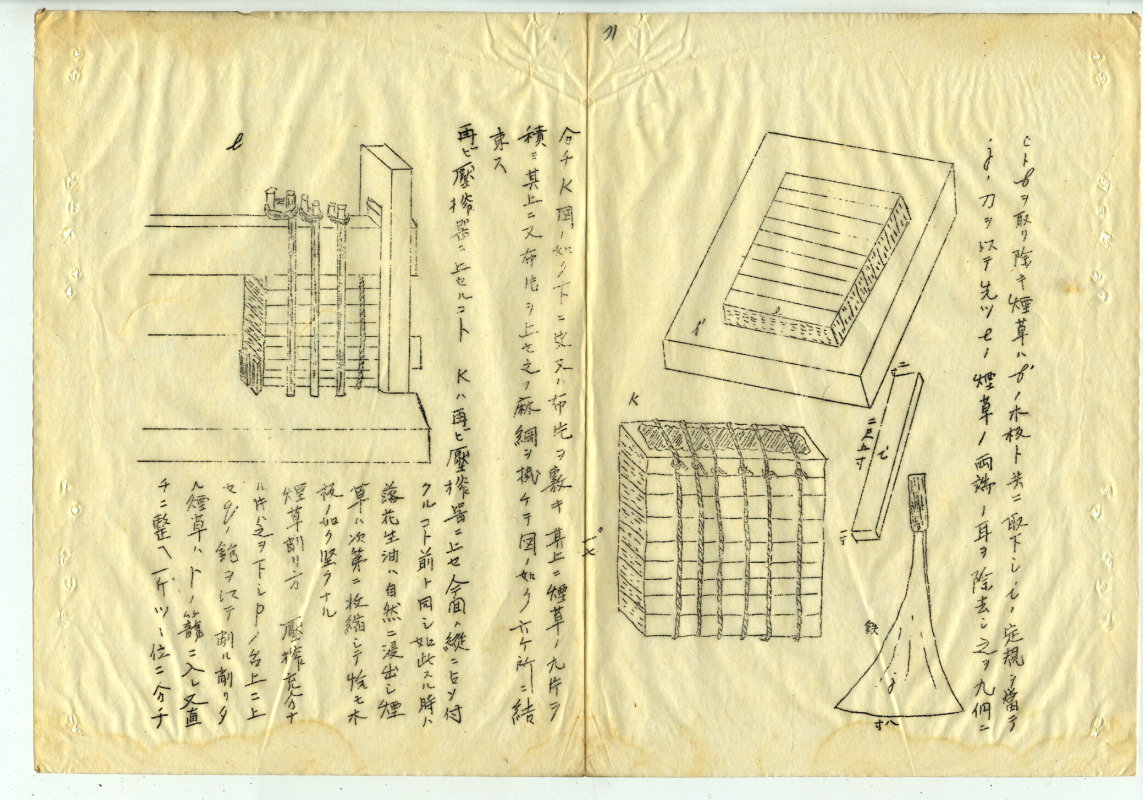 cトbヲ取リ除キ煙草ハb'ノ木板ト共ニ取下シiノ定規ヲ當テ
jノ刀ヲ以テ先ツeノ煙草ノ両端ノ耳ヲ除去シ之ヲ九個ニ
b'
二寸
二尺五寸
i
一寸
鉄
j
八寸
K
一尺
分チK図ノ如ク下ニ皮又ハ布片ヲ敷キ其上ニ煙草ノ九片ヲ
積ミ其上ニ又布片ヲ上セ之ヲ麻綱ヲ掛ケテ図ノ如ク六ケ所ニ結
束ス
再ビ壓搾器ニ上セルコト Kハ再ヒ壓搾器ニ上セ今回ハ縦ニ占ツ付
クルコト前ト同シ如此スル時ハ
落花生油ハ自然ニ浸出シ煙
草ハ次第ニ枚縮シテ恰モ木
板ノ如ク堅クナル
煙草削リ方 壓搾充分ナ
ル時ハ之ヲ下シPノ台上ニ上
セgノ鉋ヲ以テ削ル削リタ
ル煙草ハトノ籠ニ入レ又直
チニ整ヘ一斤ツヽ位ニ分チ
l